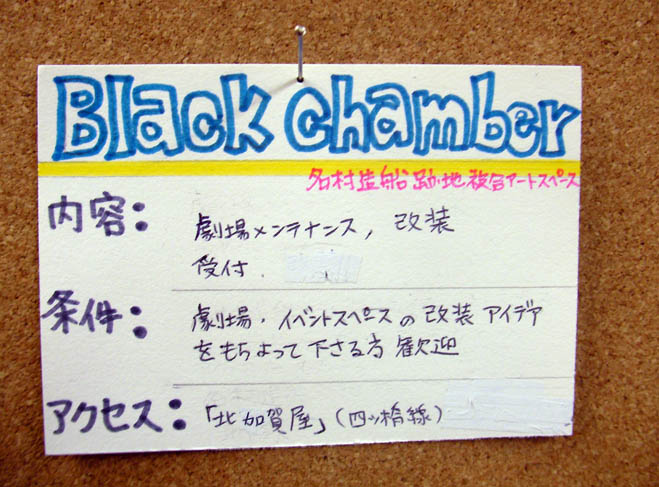 Black chamber
名村造船跡地複合アートスペース
内容: 劇場メンテナンス, 改装
受付
条件: 劇場・イベントスペースの改装アイデア
をもちよって下さる方歓迎
アクセス: 「北加賀屋」(四ツ橋線)